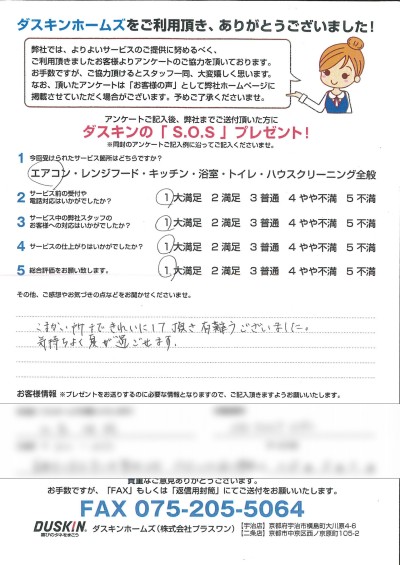 ダスキンホームズをご利用頂き、ありがとうございました!
弊社では、よりよいサービスのご提供に努めるべく、
ご利用頂きましたお客様よりアンケートのご協力を頂いております。
お手数ですが、ご協力頂けるとスタッフ一同、大変嬉しく思います。
なお、頂いたアンケートは「お客様の声」として弊社ホームページに
掲載させていただく場合がございます。予めご了承くださいませ。
アンケートご記入後、弊社までご送付頂いた方に
ダスキンの「S.O.S」プレゼント!
※同封のアンケートご記入例に沿ってご記入くださいませ。
1 今回受けられたサービス箇所はどちらですか?
エアコン・レンジフード・キッチン・浴室・トイレ・ハウスクリーニング全般
2 サービス前の受付や
電話対応はいかがでしたか?
1 大満足 2 満足 3 普通 4 やや不満 5 不満
3 サービス中の弊社スタッフの
お客様への対応はいかがでしたか?
1 大満足 2 満足 3 普通 4 やや不満 5 不満
4 サービスの仕上がりはいかがでしたか?
1 大満足 2 満足 3 普通 4 やや不満 5 不満
5 総合評価をお願い致します。
1 大満足 2 満足 3 普通 4 やや不満 5 不満
その他、ご感想やお気づきの点などをお聞かせくださいませ。
こまかい所まできれいにして頂き有難うございました。
気持ちよく夏が過ごせます。
お客様情報 ※プレゼントをお送りするのに必要な情報となりますので、ご記入頂きますようお願いいたします。
貴重なご意見ありがとうございます。
お手数ですが、「FAX」もしくは「返信用封筒」にてご送付をお願いいたします。
FAX 075-205-5064
DUSKIN
喜びのタネをまこう
ダスキンホームズ(株式会社プラスワン)
【宇治店】京都府宇治市槇島町大川原4-6
【二条店】京都市中京区西ノ京原町105-2